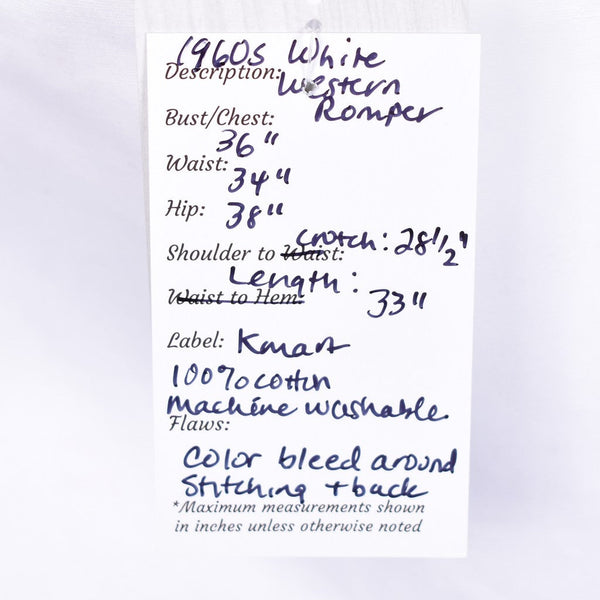 1960s White
Description: Western
Bust/Chest: Romper
36"
Waist: 34"
Hip: 38"
Shoulder to Waist: Crotch: 28 1/2"
Length:
Waist to Hem: 33"
Label: Kmart
100% cotton
Machine washable
Flaws:
Color bleed around
Stitching + back
*Maximum measurements shown
in inches unless otherwise noted